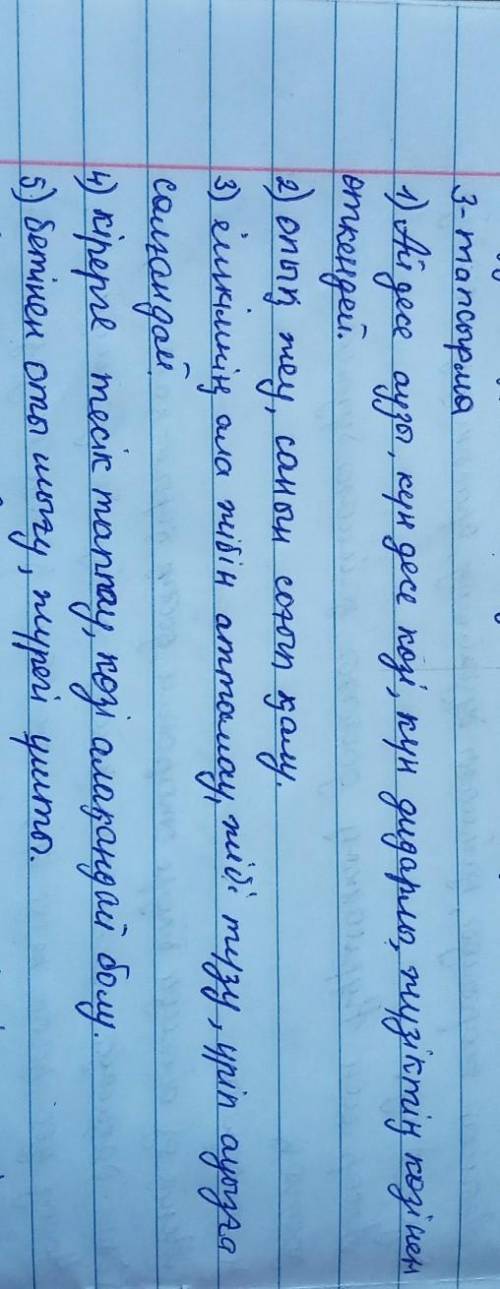 3-тапсырма
1) Ай десе аузы, күн десе көзі, күн дидарлы, жүзіктің көзінен
өткендей.
2) опық жеу, санын соғып қалу.
3) ешкімнің ала жібін аттамау, жібі түзу, үріп ауызға
салғандай.
4) кірерге тесік таппау, көзі алақандай болу.
5) бетінен оты шығу, жүрегі ұшты.